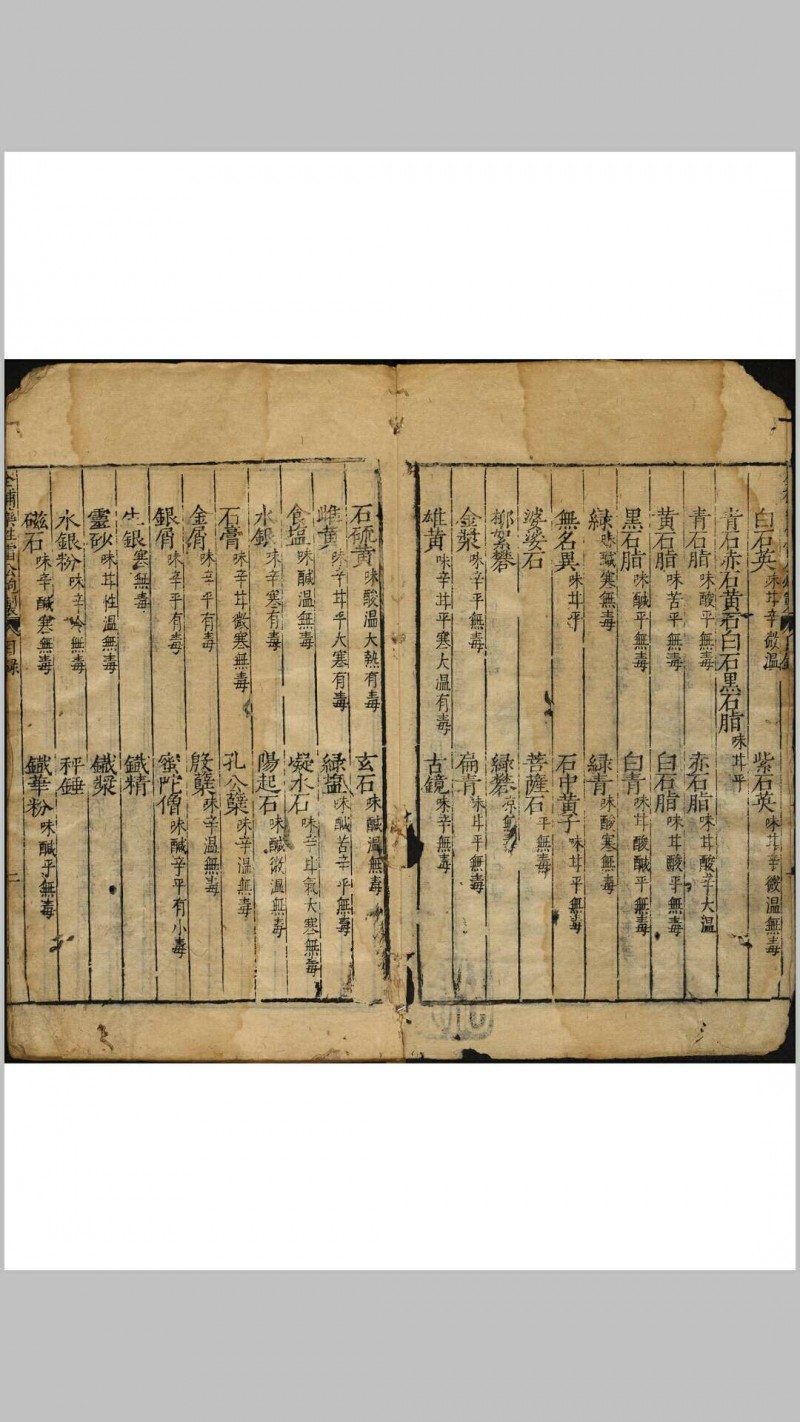 白石英味甘辛微温 紫石英味甘辛微温無毒
青石赤石黄石白石黒石脂味甘平
青石脂味酸平無毒 赤石脂味甘酸辛大温
黄石脂味苦平無毒 白石脂味甘酸平無毒
黒石脂味鹹平無毒 白青味甘酸鹹平無毒
緑 味鹹寒無毒 緑青味酸寒無毒
無名異味甘平 石中黄子味甘平無毒
婆娑石 菩薩石平無毒
栁絮礬 緑礬凉無毒
金漿味辛平無毒 扁青味甘平無毒
雄黄味辛甘平寒大温有毒 古鏡味辛無毒
石硫黄味酸温大熱有毒 玄石味鹹温無毒
雌黄味辛甘平大寒有毒 緑塩味鹹苦辛平無毒
食塩味鹹温無毒 凝水石味辛甘氣大寒無毒
水銀味辛寒有毒 陽起石味鹹微温無毒
石膏味辛甘微寒無毒 孔公櫱味辛温無毒
金屑味辛平有毒 殷櫱味辛温無毒
銀屑味辛平有毒 蜜陀僧味鹹辛平有小毒
生銀寒無毒 鐵精
靈砂味甘性温無毒 鐵漿
水銀粉味辛冷無毒 秤錘
磁石味辛鹹寒無毒 鐵華粉味鹹平無毒
目録
二